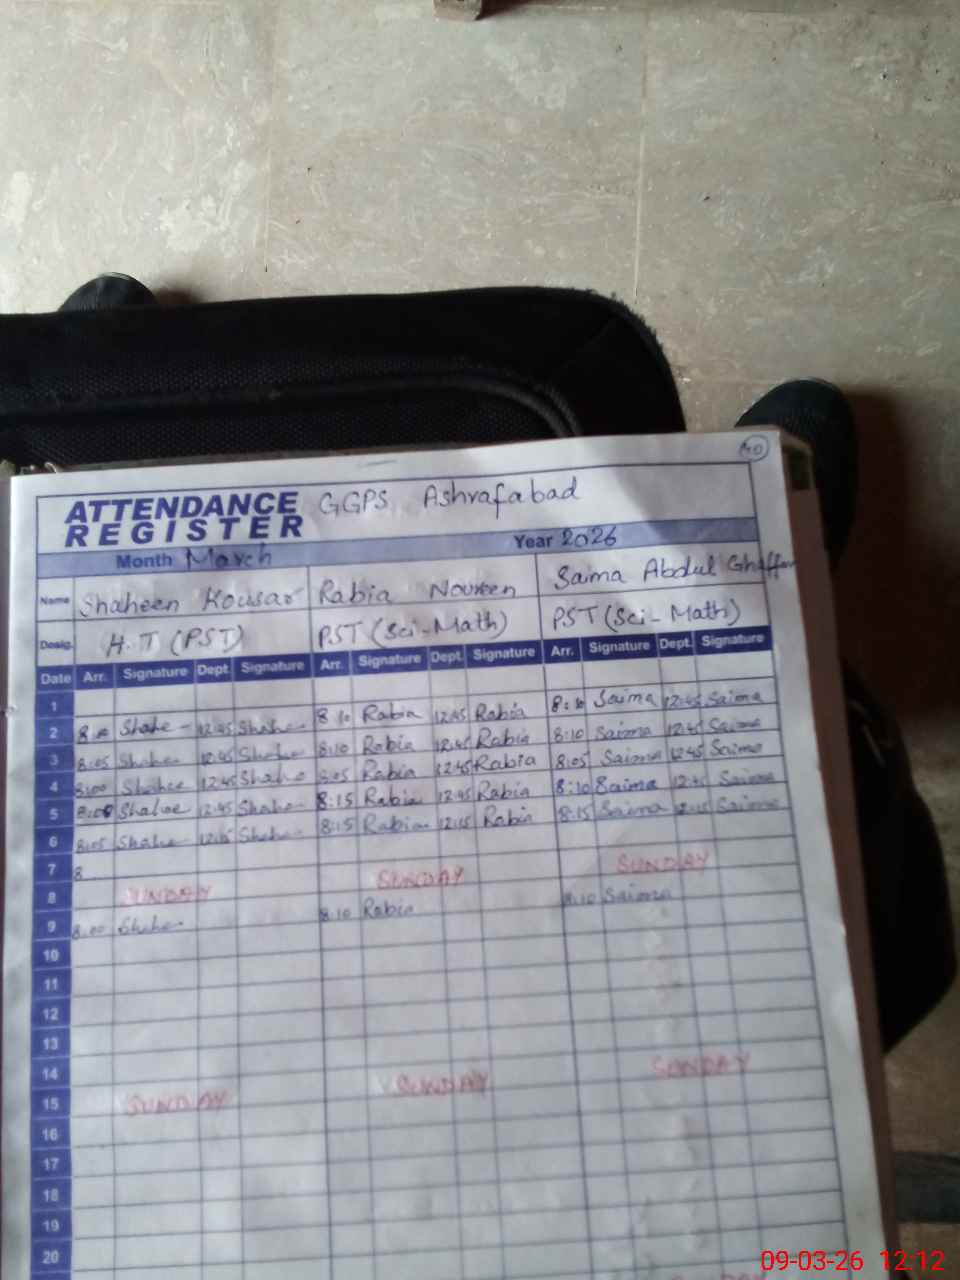 40
ATTENDANCE REGISTER GGPS Ashrafabad
Month March Year 2026
Name Shaheen Kousar Rabia Noureen Saima Abdul Ghaffar
Desig. H.T (PST) PST (Sci-Math) PST (Sci-Math)
Date Arr. Signature Dept. Signature Arr. Signature Dept. Signature Arr. Signature Dept. Signature
1
2 Shahe 12:45 Shahe 8:10 Rabia 12:45 Rabia 8:10 Saima 12:45 Saima
3 8:05 Shahe 12:45 Shahe 8:10 Rabia 12:45 Rabia 8:10 Saima 12:45 Saima
4 8:00 Shahe 12:45 Shahe 8:05 Rabia 12:45 Rabia 8:05 Saima 12:45 Saima
5 Shahe 12:45 Shahe 8:15 Rabia 12:45 Rabia 8:10 Saima 12:45 Saima
6 8:05 Shahe Shahe 8:15 Rabia 12:15 Rabia 8:15 Saima 12:15 Saima
7 8
8 SUNDAY SUNDAY SUNDAY
9 8:00 Shahe 8:10 Rabia 8:10 Saima
10
11
12
13
14
15 SUNDAY SUNDAY SUNDAY
16
17
18
19
20
09-03-26 12:12